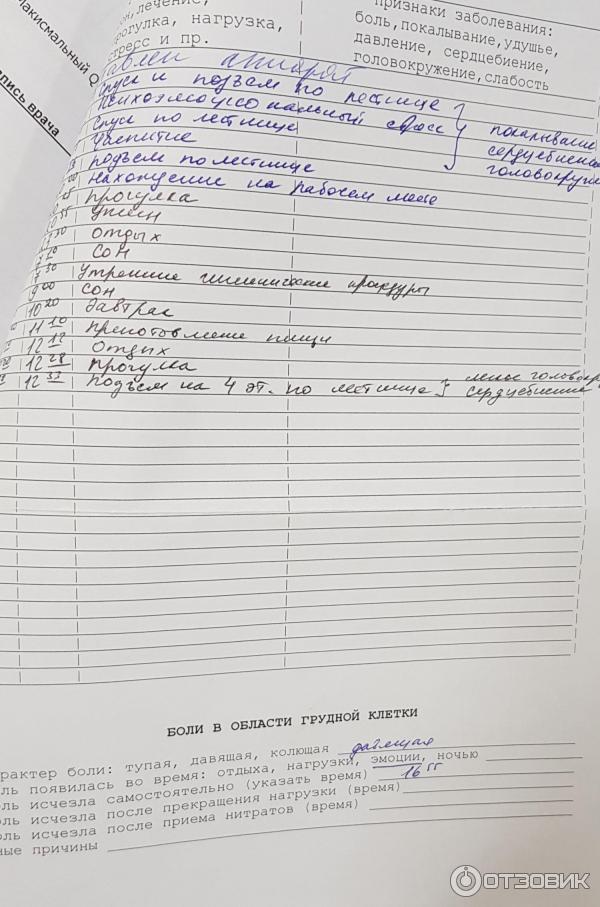 Максимальный
подпись врача
лечение,
прогулка, нагрузка,
стресс и пр.
признаки заболевания:
боль, покалывание, удушье,
давление, сердцебиение,
головокружение, слабость
аппарат
спуск и подъем по лестнице
Психоэмоциональный стресс } покалывание
спуск по лестнице сердцебиение
чаепитие головокруж
подъем по лестнице
нахождение на рабочем месте
прогулка
ужин
отдых
сон
30 Утренние гигиенические процедуры
9 00 сон
10 20 завтрак
11 10 приготовление пищи
12 12 отдых
12 28 прогулка
12 37 подъем на 4 эт. по лестнице } головокр
сердцебиение
БОЛИ В ОБЛАСТИ ГРУДНОЙ КЛЕТКИ
арактер боли: тупая, давящая, колющая давящая
ль появилась во время: отдыха, нагрузки, эмоции, ночью
ль исчезла самостоятельно (указать время) 16 55
оль исчезла после прекращения нагрузки (время)
оль исчезла после приема нитратов (время)
ные причины
ОТЗОВИК